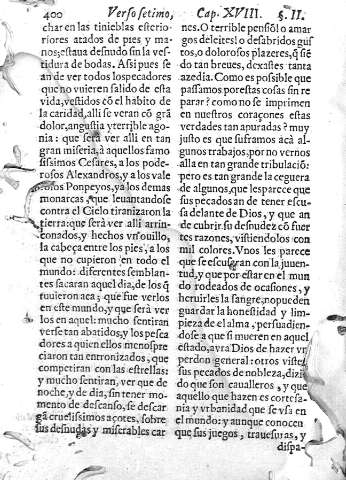 400 Verso setimo, Cap. XVIII. §. II.
char en las tinieblas esterio-
riores atados de pies y ma-
nos; estaua desnudo sin la ves-
tidura de bodas. Assi pues se
an de ver todos los pecadores
que no vuieren salido de esta
vida, vestidos cõ el habito de
la caridad, alli se veran cõ grã
dolor, angustia y terrible ago-
nia: que serà ver alli en tan
gran miseria, à aquellos famo
sissimos Cesares, a los pode-
rosos Alexandros, y a los vale
rosos Ponpeyos, ya los demas
monarcas, que leuantandose
contra el Cielo tiranizaron la
tierra: que serà ver alli arrin-
conados, y hechos vn ouillo,
la cabeça entre los pies, a los
que no cupieron en todo el
mundo: diferentes semblan-
tes sacaran aquel dia, de los q̃
tuuieron aca; que fue verlos
en este mundo, y que serà ver
los en aquel: mucho sentiran
verse tan abatidos, y los pesca
dores a quien ellos menospre
ciaron tan entronizados, que
competiran con las estrellas:
y mucho sentiran, ver que de
noche, y de dia, sin tener mo-
mento de descanso, se descar
gã cruelissimos açotes, sobre
sus desnudas y miserables car
nes. O terrible pensiõ! o amar
gos deleites! o desabridos gus
tos, o dolorosos plazeres, q̃ siẽ
do tan breues, dexastes tanta
azedia. Como es posible que
passamos por estas cosas sin re
parar? como no se imprimen
en nuestros coraçones estas
verdades tan apuradas? muy
justo es que suframos acà al-
gunos trabajos, por no vernos
alla en tan grande tribulaciõ:
pero es tan grande la ceguera
de algunos, que les parece que
sus pecados an de tener escu-
sa delante de Dios, y que an
de cubrir su desnudez cõ fuer
tes razones, vistiendolos con
mil colores. Vnos les parece
que se escusaran con la juuen-
tud, y que por estar en el mun
do rodeados de ocasiones, y
heruirles la sangre, no pueden
guardar la honestidad y lim-
pieza de el alma, persuadien-
dose a que si mueren en aquel
estado, avra Dios de hazer vn
perdon general: otros visten
sus pecados de nobleza, dizië
do que son caualleros, y que
aquello que hazen es cortesa-
nia y vrbanidad que se vsa en
el mundo: y aunque conocen
que sus juegos, trauesuras, y
dispa-